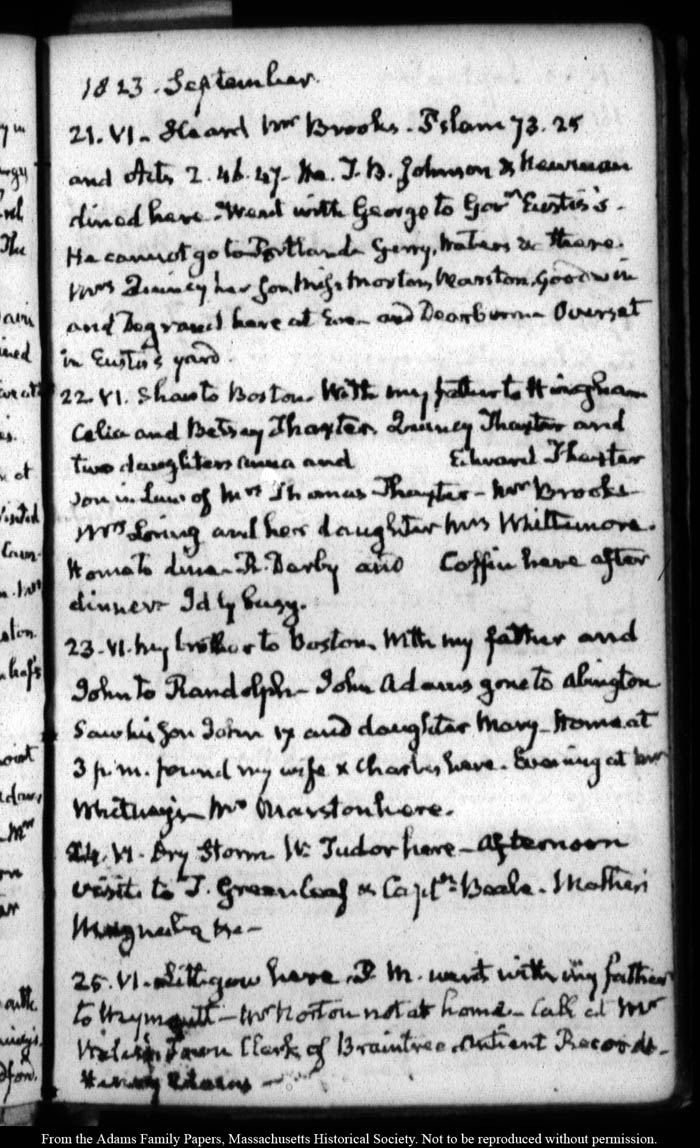 1823. September.
21. VI. Heard Mr Brooks. Psalm 73. 25
and Acts 2. 46. 47. T. B. Johnson &
dined here. Went with George to Govr Eustis's.
He cannot go to Portland. Gerry, Waters &c there.
Mrs Quincy her son, Miss Morton, Marston, Goodwin
and Degrand here at Eve. and Dearborn Overset
in Eustis's yard.
22. VI. Shaw to Boston. With my father to Hingham
Celia and Betsey Thaxter, Quincy Thaxter and
two daughters Anna and Edward Thaxter
son in law of Mrs Thomas Thaxter - Mr Brooks
Mrs Loring and her daughter Mrs Whittemore.
Home to dine. R. Darby and Coffin here after
dinner. Idly busy.
23. VI. My brother to Boston. With my father and
John to Randolph - John Adams gone to Abington
Saw his son John 17 and daughter Mary - Home at
3 p.m. found my wife & Charles here. Evening at Mr
Whitney's Mrs Marston here.
24. VI. Dry Storm W. Tudor here - Afternoon
visit to T. Greenleaf & Captn Beale. Mather's
Magnalia &c -
25. VI. here. went with my father
to Weymouth - Mr Norton not at home - Call at Mr
Town Clerk of Braintree. Antient Records -
Henry Adams -
From the Adams Family Papers, Massachusetts Historical Society. Not to be reproduced without permission.